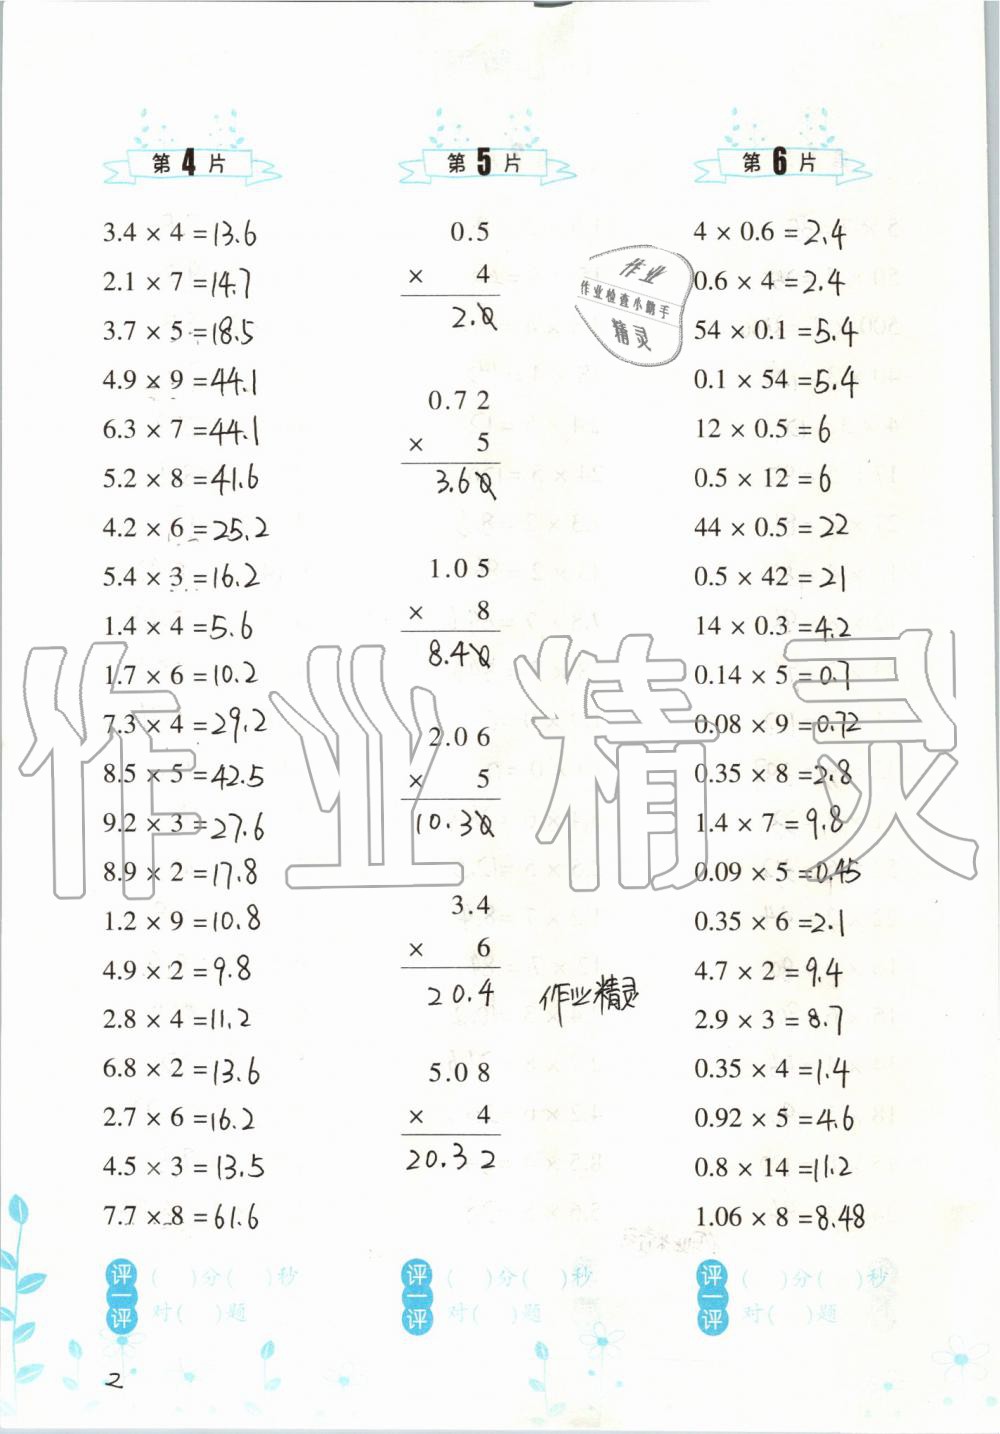 第4片
3.4 × 4 =13.6
2.1 × 7 =14.7
3.7 × 5 =18.5
4.9 × 9 =44.1
6.3 × 7 =44.1
5.2 × 8 =41.6
4.2 × 6 =25.2
5.4 × 3 =16.2
1.4 × 4 =5.6
1.7 × 6 =10.2
7.3 × 4 =29.2
8.5 × 5 =42.5
9.2 × 3 =27.6
8.9 × 2 =17.8
1.2 × 9 =10.8
4.9 × 2 =9.8
2.8 × 4 =11.2
6.8 × 2 =13.6
2.7 × 6 =16.2
4.5 × 3 =13.5
7.7 × 8 =61.6
评一评
( )分( )秒
对( )题
第5片
0.5
× 4
2.0
0.72
× 5
3.60
1.05
× 8
8.40
2.06
× 5
10.30
3.4
× 6
20.4
作业精灵
5.08
× 4
20.32
评一评
( )分( )秒
对( )题
第6片
作业
作业检查小助手
精灵
4 × 0.6 =2.4
0.6 × 4 =2.4
54 × 0.1 =5.4
0.1 × 54 =5.4
12 × 0.5 =6
0.5 × 12 =6
44 × 0.5 =22
0.5 × 42 =21
14 × 0.3 =4.2
0.14 × 5 =0.7
0.08 × 9 =0.72
0.35 × 8 =2.8
1.4 × 7 =9.8
0.09 × 5 =0.45
0.35 × 6 =2.1
4.7 × 2 =9.4
2.9 × 3 =8.7
0.35 × 4 =1.4
0.92 × 5 =4.6
0.8 × 14 =11.2
1.06 × 8 =8.48
评一评
( )分( )秒
对( )题
作业精灵
2